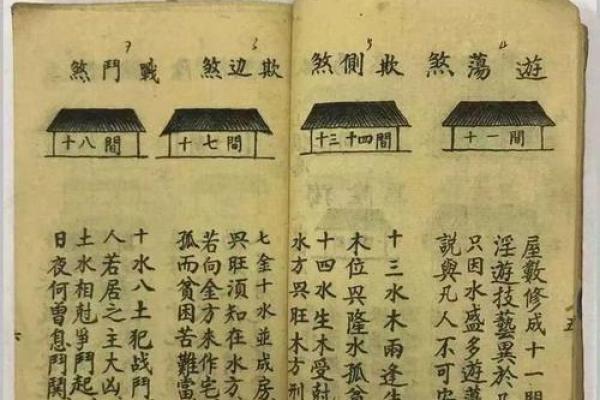 4
遊蕩煞
十一間
屋數修成十一間
淫遊技藝異於
只因水盛多遊蕩
說與凡人不可
5
欺側煞
十三十四間
十三水木兩逢生
木位兴隆水孤貧
十四水生木受
水方兴旺木方刑
6
欺边煞
十七間
七金十水並成房
兴旺須知在水方
若向金方来作宅
孤而貧困苦難當
7
戰鬥煞
十八間
十水八土犯战鬥
人若居之主大凶
土水相尅爭鬥起
日夜何曾息鬥関
五
六